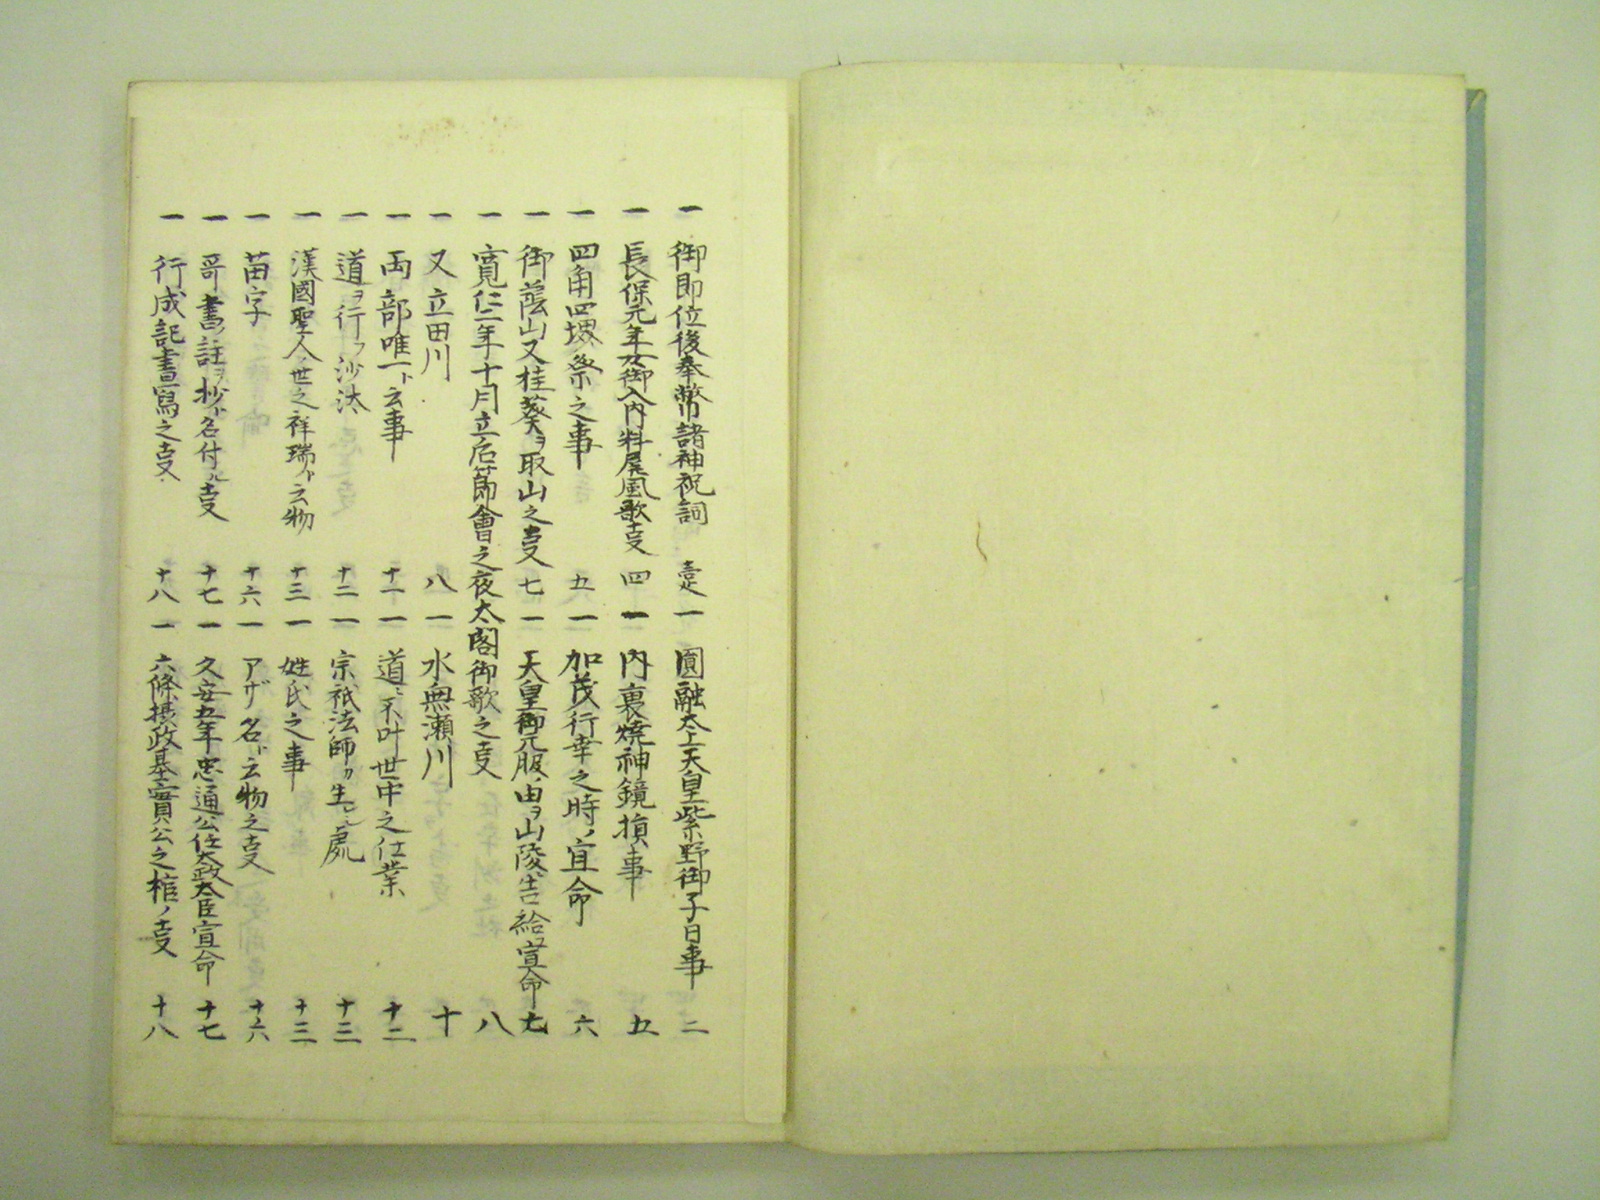 一 御即位後奉幣諸神祝詞 壹 一 圓融太上天皇紫野御子日事 二
一 長保元年女御入内料屏風歌叓 四 一 内裏焼神鏡損事 五
一 四角四堺祭之事 五 一 加茂行幸之時ノ宣命 六
一 御蔭山又桂葵ヲ取山之叓 七 一 天皇御元服ノ由ヲ山陵ニ告給フ宣命 七
一 寛仁二年十月立后節會之夜太閤御歌之叓 八
一 又立田川 八 一 水無瀬川 十
一 両部唯一ト云事 十一 一 道ニ不叶世中之仕業 十二
一 道ヲ行フ沙汰 十二 一 宗祇法師カ生レシ處 十三
一 漢國聖人ノ世之祥瑞ト云物 十三 一 姓氏之事 十三
一 苗字 十六 一 アザ名ト云物之叓 十六
一 哥書ノ註ヲ抄ト名付ル叓 十七 一 久安五年忠通公任太政大臣宣命 十七
一 行成記書寫之叓 十八 一 六條摂政基實公之棺ノ叓 十八